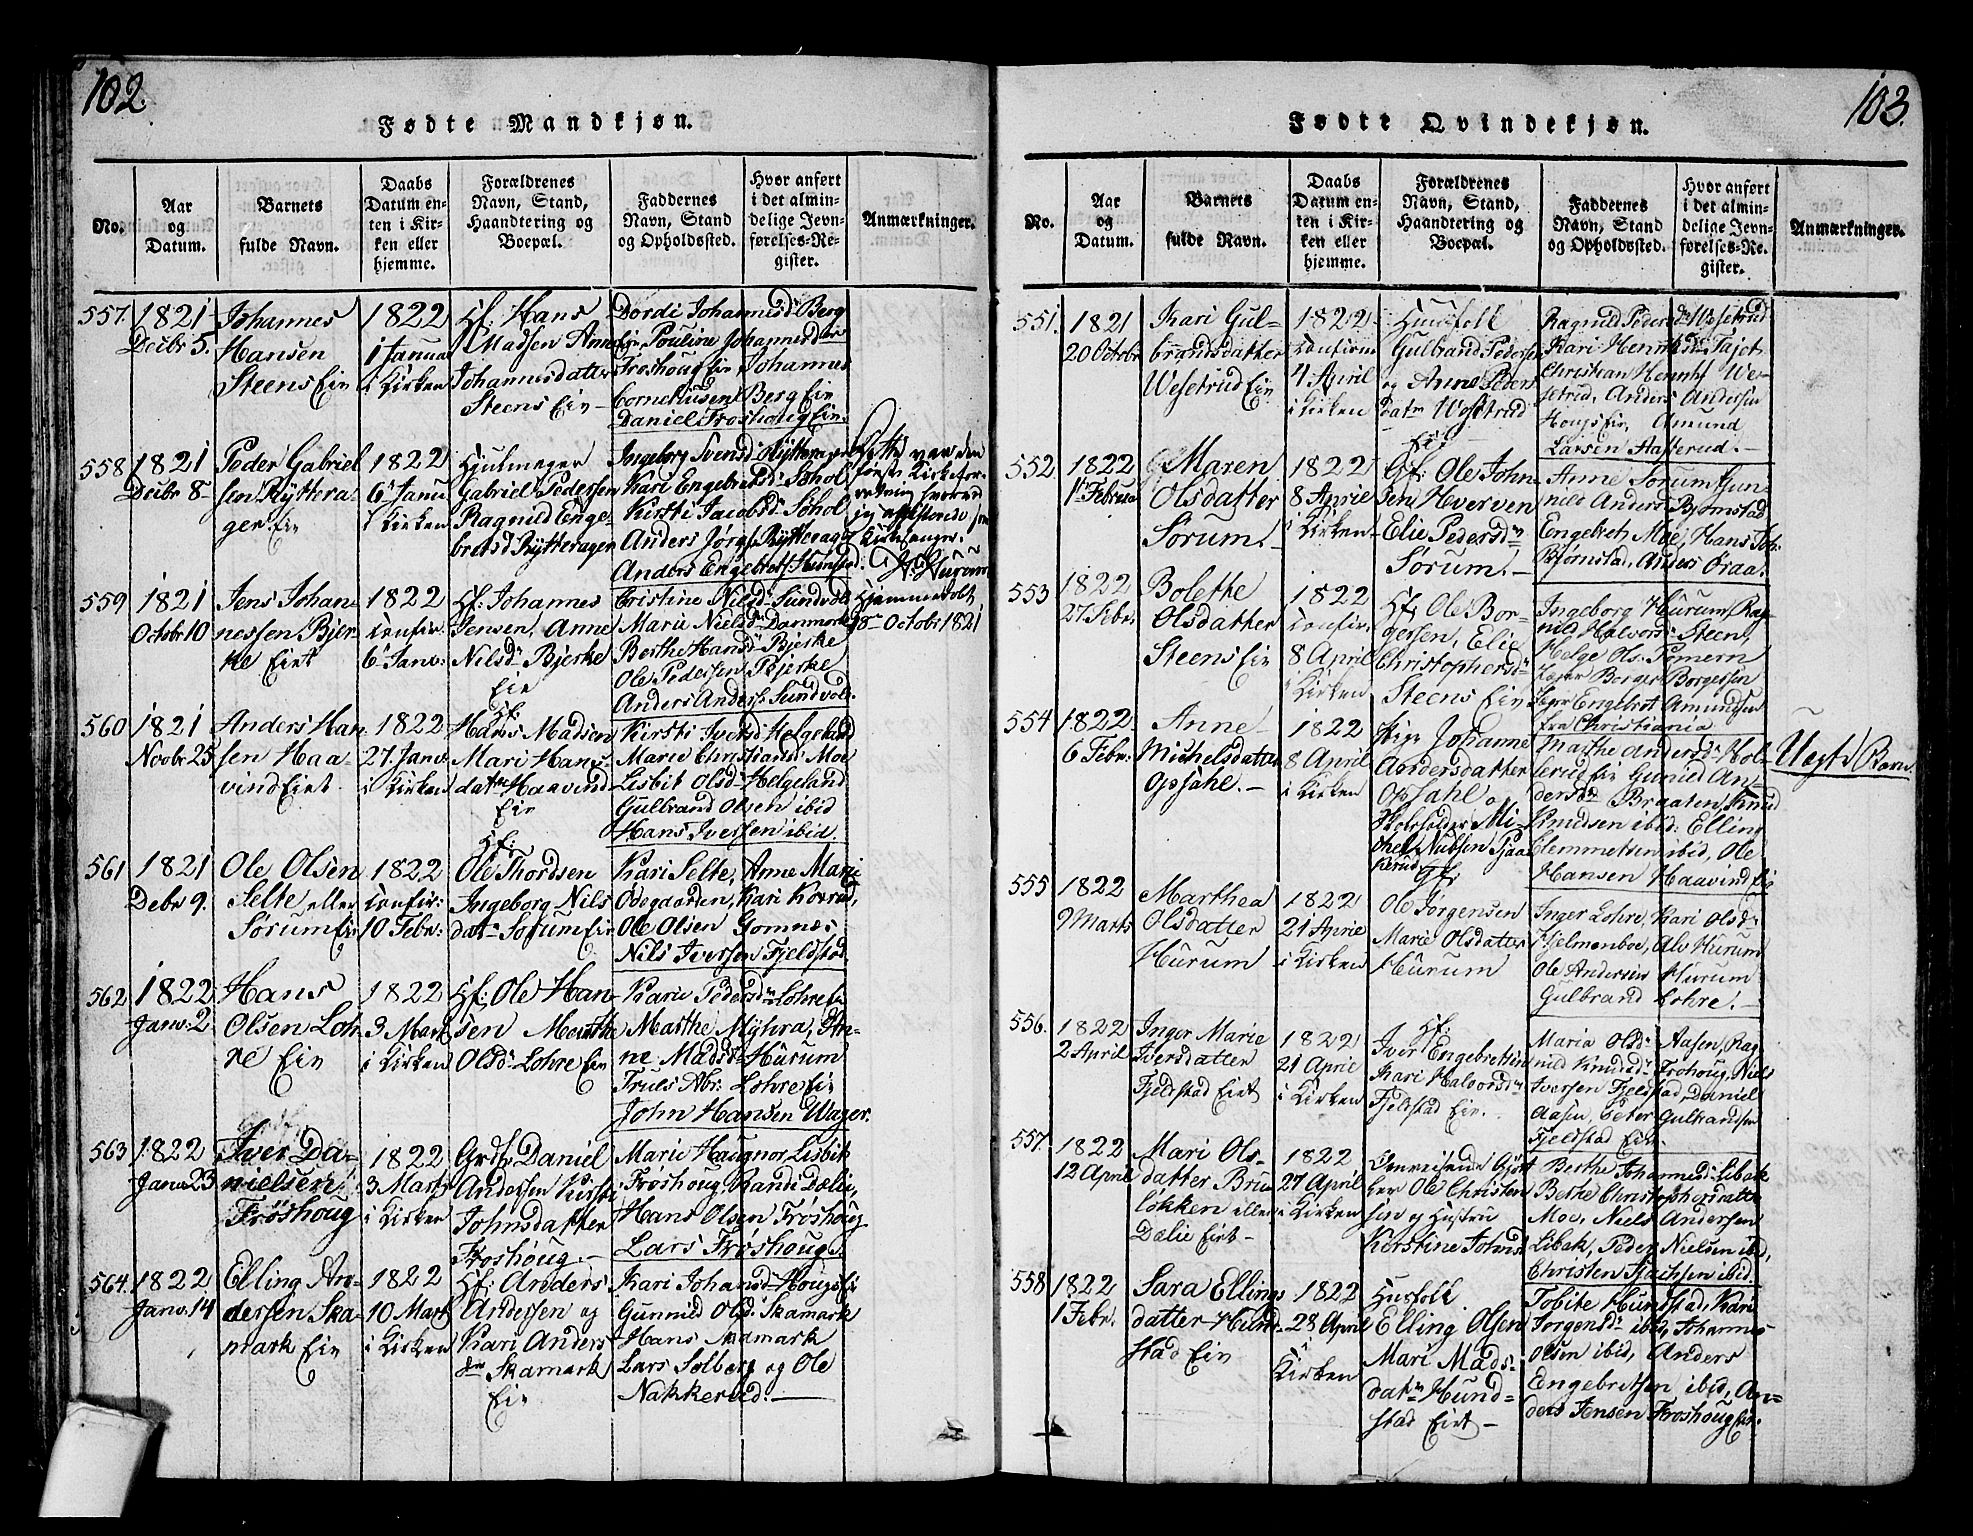 102.
Fødte Mandkjøn.
No.
Aar
og
Datum.
Barnets
fulde Navn.
Daabs
Datum en-
ten i Kir-
ken eller
hjemme.
Forældrenes
Navn, Stand,
Haandtering og
Boepæl.
Faddernes
Navn, Stand
og Opholdssted.
Hvor anført
i det almin-
delige Jevn-
førelses-Re-
gister.
Anmærkninger.
557.
1821
Decbr 5.
Johannes
Hansen
Steens Eie
1822
1 Januar
i Kirken
Hf. Hans
Madsen Anne
Johannesdatter
Steens Eie
Dordi Johannisdr Berg
Eie, Pouline Johannesdr
Froshoug Eie Johannes
Corneliusen Berg Eie
Daniel Froshoug Eie.
558
1821
Decbr 8
Peder Gabriel
sen Ryttera-
ger Eie
1822
6 Janu
i Kirken
Hjulmager
Gabriel Pedersen
Ragnild Enge-
bretsd Rytterager
Ingeborg Svensd Rytterager
Kari Engebretsd Sohol
Kirsti Jacobsd Sohol
Anders Jørgs Rytterager
Anders Engebretss Hunstad.
Dette var den
første Kirkefor-
retning hvorved
jeg assisterede som
Kirkesanger.
559
1821
Octobr 10
Jens Johan-
nessen Bjer-
ke Eiet
1822
confir.
6 Janv:
Hf: Johannes
Jensen, Anne
Nilsdr Bjerke
Eie
Cristine Nilsdr Sundvold
Marie Nielsdr Danmark
Berthe Hansdr Bjerke
Ole Pedersen Bjerke
Anders Anders. Sundvold.
Hjemmedøbt
18 October 1821
560
1821
Novbr 25
Anders Han
sen Haa-
vind Eiet.
1822
27 Janu
i Kirken
Hf:
Hans Madsen
Mari Hans-
datter Haavind
Eie
Kirsti Iversd Helgeland
Marie Christiansd Moe
Lisbit Olsd Helgeland
Gulbrand Olsen ibid
Hans Iversen ibid.
561
1821
Debr 9.
Ole Olsen
Selte eller
Sørum Eie
1822
confir:
10 Febr:
Hf:
Ole Thordsen
Ingeborg Nils
datr Sørum Eie
Kari Selte, Anne Mari
Odegaarden, Kari Korrud,
Ole Olsen Gomnæs
Nils Iversen Fjeldstad
562
1822
Janv: 2
Hans
Olsen Loh-
re Eie
1822
3 Marts
i Kirken
Hf: Ole Han
sen Marthe
Olsdr Lohre Eie
Karie Pedersdr Lohre Eie
Marthe Myhra, An-
ne Madsd Hurum
Truls Abr: Lohre Eie
John Hansen Wager.
563
1822
Janv 23
Iver Da-
nielsen
Frøshoug
1822
3 Marts
i Kirken
Grdb Daniel
Andersen Kirsti
Johnsdatter
Froshoug.
Marie Haugnor, Lisbit
Frøshoug, Randi Dælie,
Hans Olsen Frøshoug
Lars Frøshoug.
564.
1822
Janv. 14
Elling An-
dersen Ska-
mark Eie
1822
10 Marts
i Kirken
Hf: Anders
Andersen og
Kari Anders
dr Skamark
Eie
Kari Johansd Hougs Ei
Gunnild Olsd Skamark
Hans Skamark
Lars Solberg og Ole
Nakkerud.
103.
Fødte Qvindekjøn.
No.
Aar
og
Datum.
Barnets
fulde Navn.
Daabs
Datum en-
ten i Kir-
ken eller
hjemme.
Forældrenes
Navn, Stand,
Haandtering og
Boepæl.
Faddernes
Navn, Stand
og Opholdssted.
Hvor anført
i det almin-
delige Jevn-
førelses-Re-
gister.
Anmærkninger.
551.
1821
20 Octobr
Kari Gul-
brandsdatter
Wesetrud Eie
1822
confirm
4 April
i Kirken
Huusfolk
Gulbrand Pedersen
og Anne Peders
datr Wesetrud
Eie
Ragnild Pedersdr Wesetrud
Kari Henriksdr Tajet
Christian Henriks We-
setrud, Anders Andersen
Hougs Eie, Amund
Larsen Hafferud.
552
1822
1 Februar
Maren
Olsdatter
Sørum
1822
8 April
i Kirken
Gf: Ole John
sen Hverven
Elie Pedersdr
Sørum.
Anne Sorum Gun-
nild Andersd Bjørnstad
Engebreth Moe, Hans Joh.
Bjørnstad, Anders Oraa.
553
1822
27 Febr.
Bolethe
Olsdatter
Steens Eie
1822
confir.
8 April
i Kirken
Hf: Ole Bor-
gersen, Elie
Christophersd
Steens Eie
Ingeborg Hurum, Rag-
nild Halvorsd Steen,
Helge Ols. Pomern
Borger Borgersen
Engebret Amundsen
fra Christiania
554
1822
6 Febr:
Anne
Michelsdatter
Opsahl.
1822
8 April
i Kirken
Pige Johanne
Andersdatter
Opsahl og
Skoleholder Mi-
chel Nubsen Pjaa
kerud
Marthe Andersdr Hol-
serud Eie Gunild An-
dersdr Braaten, Knud
Knudsen ibid: Elling
Clemmetsen ibid, Ole
Hansen Haavind Eie
Uegte Barn
555
1822
Marts
Marthea
Olsdatter
Hurum
1822
21 April
i Kirken
Gf:
Ole Jørgensen
Marie Olsdatter
Hurum
Inger Lohre, Kari Olsd
Hjelmenboe, Alv Hurum
Ole Andersen Hurum
Gulbrand Lohre.
556.
1822
2 April
Inger Marie
Iversdatter
Fjeldstad Eiet
1822
21 April
i Kirken
Hf:
Iver Engebretsen
Kari Halvorsdr
Fjeldstad Eie.
Maria Olsd Aasen, Rag
nild Knudsd Frohoug, Niels
Iversen Fjeldstad, Daniel
Aasen, Peter Gulbrandsen
Fjeldstad Eie.
557.
1822
12 April
Mari Ols-
datter Bru
løkken eller
Dælie Eiet
1822
27 April
i Kirken
Ole Christen
sen og Hustru
Kirstine
Berthe Johannesd Libak
Berthe Christophersdatter
Moe, Niels Andersen
Libak, Peder Nielsen ibid,
558
1822
1 Febr.
Sara Ellings
datter Hund-
stad Eie
1822
28 April
i Kirken
Husfolk
Elling Olsen
Mari Mads-
datr Hund-
stad Eiet
Tobite Hundstad, Kari
Jorgensdr ibid, Johannes
Olsen ibid, Anders
Engebretsen ibid, An-
ders Jensen Froshoug Eie.